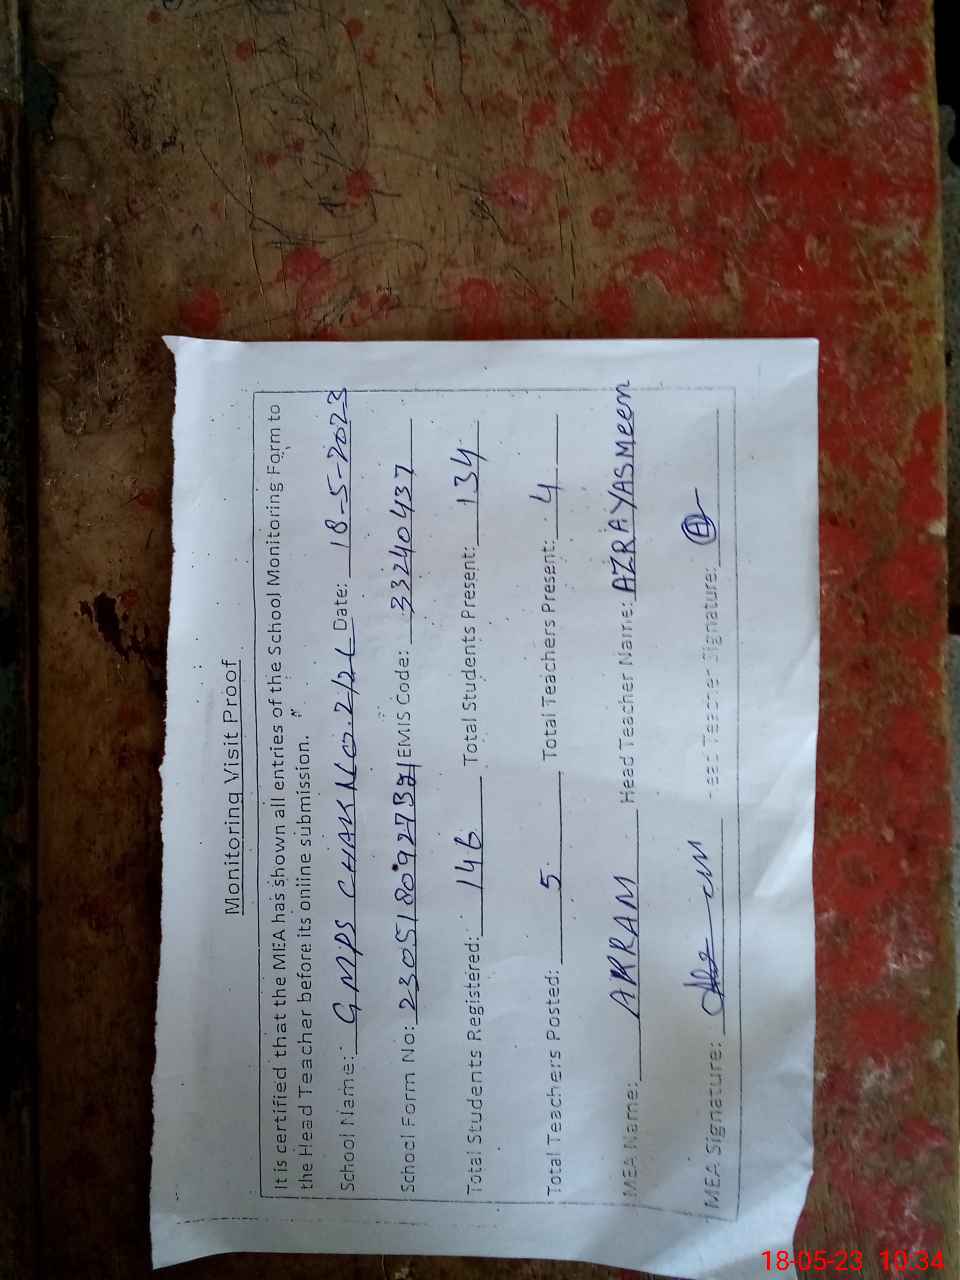 Monitoring Visit Proof
It is certified that the MEA has shown all entries of the School Monitoring Form to
the Head Teacher before its online submission.
School Name: GMPS CHAK NO.2/2L Date: 18-5-2023
School Form No: EMIS Code: 33240437
Total Students Registered: 146 Total Students Present: 134
Total Teachers Posted: 5 Total Teachers Present: 4
MEA Name: AKRAM Head Teacher Name: AZRA YASMeen
MEA Signature: Head Teacher Signature:
18-05-23 10:34